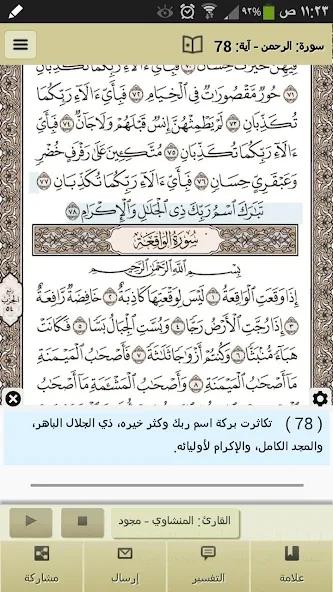 ١١:٢٣ ص
٩٣%
سورة: الرحمن - آية: 78
فِيهِنَّ خَيْرَٰتٌ حِسَانٌ ۝٧٠ فَبِأَيِّ ءَالَآءِ رَبِّكُمَا تُكَذِّبَانِ
۝٧١ حُورٌ مَّقْصُورَٰتٌ فِي ٱلْخِيَامِ ۝٧٢ فَبِأَيِّ ءَالَآءِ رَبِّكُمَا
تُكَذِّبَانِ ۝٧٣ لَمْ يَطْمِثْهُنَّ إِنسٌ قَبْلَهُمْ وَلَا جَآنٌّ ۝٧٤ فَبِأَيِّ ءَالَآءِ
رَبِّكُمَا تُكَذِّبَانِ ۝٧٥ مُتَّكِـِٔينَ عَلَىٰ رَفْرَفٍ خُضْرٍ
وَعَبْقَرِيٍّ حِسَانٍ ۝٧٦ فَبِأَيِّ ءَالَآءِ رَبِّكُمَا تُكَذِّبَانِ ۝٧٧
تَبَٰرَكَ ٱسْمُ رَبِّكَ ذِي ٱلْجَلَٰلِ وَٱلْإِكْرَامِ ۝٧٨
سُورَةُ الوَاقِعَةِ
بِسْمِ ٱللَّهِ ٱلرَّحْمَٰنِ ٱلرَّحِيمِ
إِذَا وَقَعَتِ ٱلْوَاقِعَةُ ۝١ لَيْسَ لِوَقْعَتِهَا كَاذِبَةٌ ۝٢ خَافِضَةٌ رَّافِعَةٌ
۝٣ إِذَا رُجَّتِ ٱلْأَرْضُ رَجًّا ۝٤ وَبُسَّتِ ٱلْجِبَالُ بَسًّا ۝٥ فَكَانَتْ
هَبَآءً مُّنۢبَثًّا ۝٦ وَكُنتُمْ أَزْوَٰجًا ثَلَٰثَةً ۝٧ فَأَصْحَٰبُ ٱلْمَيْمَنَةِ
مَآ أَصْحَٰبُ ٱلْمَيْمَنَةِ ۝٨ وَأَصْحَٰبُ ٱلْمَشْـَٔمَةِ مَآ أَصْحَٰبُ
الحزب
٥٤
(78) تكاثرت بركة اسم ربك وكثر خيره، ذي الجلال الباهر،
والمجد الكامل، والإكرام لأوليائه.
القارئ: المنشاوي - مجود
علامة
التفسير
إرسال
مشاركة